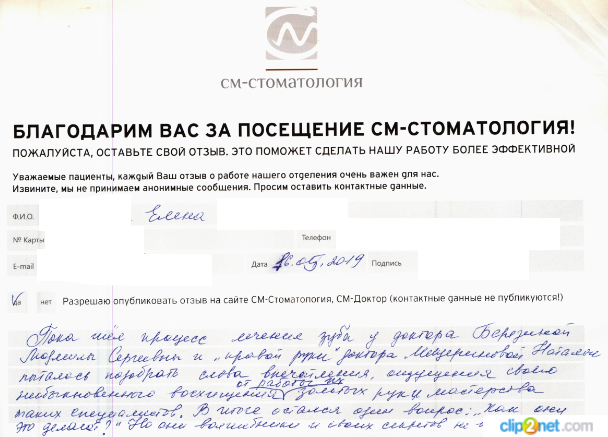 СМ-СТОМАТОЛОГИЯ
БЛАГОДАРИМ ВАС ЗА ПОСЕЩЕНИЕ СМ-СТОМАТОЛОГИЯ!
ПОЖАЛУЙСТА, ОСТАВЬТЕ СВОЙ ОТЗЫВ. ЭТО ПОМОЖЕТ СДЕЛАТЬ НАШУ РАБОТУ БОЛЕЕ ЭФФЕКТИВНОЙ
Уважаемые пациенты, каждый Ваш отзыв о работе нашего отделения очень важен для нас.
Извините, мы не принимаем анонимные сообщения. Просим оставить контактные данные.
Ф.И.О. Елена
№ Карты Телефон
E-mail Дата 2019 Подпись
да нет Разрешаю опубликовать отзыв на сайте СМ-Стоматология, СМ-Доктор (контактные данные не публикуются!)
Пока шёл процесс лечения зуба у доктора
Людмилы Сергеевны и "правой руки" доктора Мещериновой Наталии
пыталась подобрать слова впечатления, ощущения своего
от работы их
необыкновенного восхищения золотых руки мастерства
таких специалистов. В итоге остался один вопрос: "Как они
это делают?" Но они волшебники и своих секретов не
clip2net.com